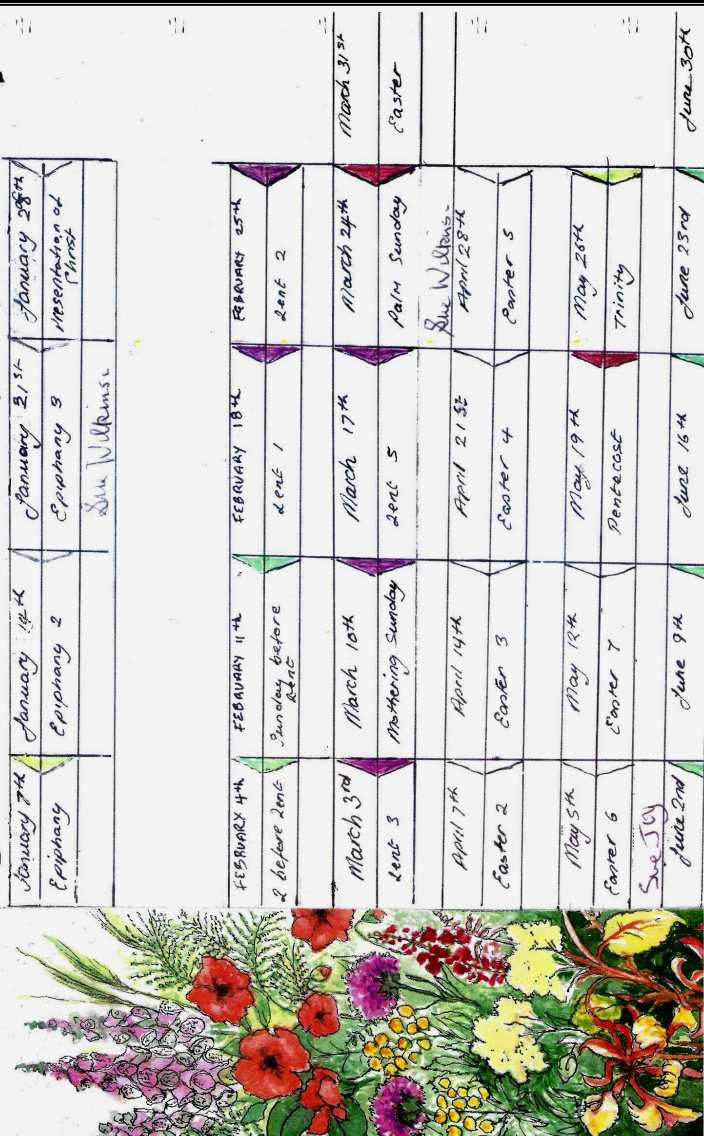 January 7th January 14th January 21st January 28th
Epiphany Epiphany 2 Epiphany 3 Presentation of
Christ
Sue Wilkins.
FEBRUARY 4th FEBRUARY 11th FEBRUARY 18th FEBRUARY 25th
2 before Lent Sunday before Lent 1 Lent 2
Lent
March 3rd March 10th March 17th March 24th March 31st
Lent 3 Mothering Sunday Lent 5 Palm Sunday Easter
Sue Wilkins.
April 7th April 14th April 21st April 28th
Easter 2 Easter 3 Easter 4 Easter 5
May 5th May 12th May 19th May 26th
Easter 6 Easter 7 Pentecost Trinity
Sue
June 2nd June 9th June 16th June 23rd June 30th